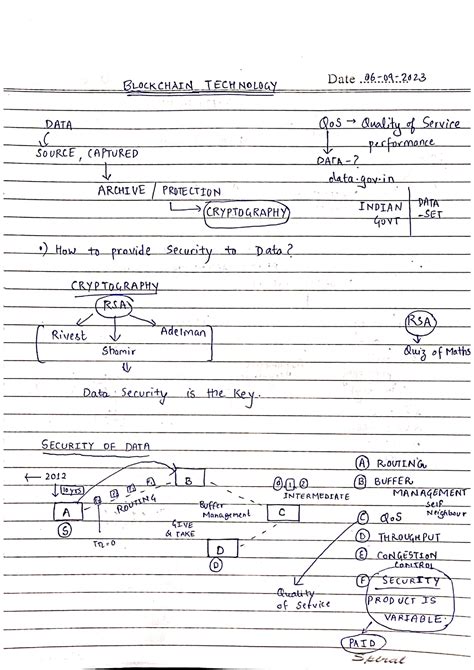 BLOCKCHAIN TECHNOLOGY
Date 06-09-2023
DATA
SOURCE, CAPTURED
ARCHIVE / PROTECTION
CRYPTOGRAPHY
QoS → Quality of Service
performance
DATA - ?
data.gov.in
INDIAN GOVT
DATA -SET
•) How to provide Security to Data?
CRYPTOGRAPHY
RSA
Rivest
Shamir
Adelman
RSA
Quiz of Maths
Data Security is the Key.
SECURITY OF DATA
← 2012
10 yrs
A
S
ROUTING
B
Buffer Management
GIVE & TAKE
0 1 2
INTERMEDIATE
C
D
D
Quality of Service
A ROUTING
B BUFFER
MANAGEMENT
self
Neighbour
C QoS
D THROUGHPUT
E CONGESTION
CONTROL
F SECURITY
PRODUCT IS
VARIABLE.
PAID
Spiral